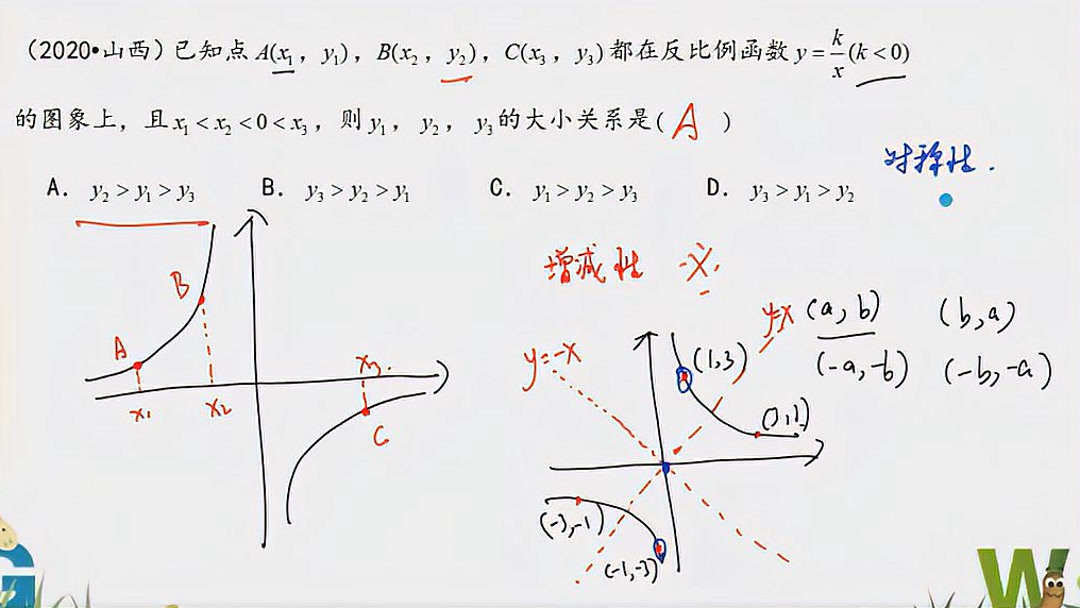 (2020•山西)已知点 A(x₁，y₁)，B(x₂，y₂)，C(x₃，y₃)都在反比例函数 y=k/x(k<0)
的图象上，且x₁<x₂<0<x₃，则y₁，y₂，y₃的大小关系是( A )
对称性.
A. y₂>y₁>y₃ B. y₃>y₂>y₁ C. y₁>y₂>y₃ D. y₃>y₁>y₂
增减性 -x.
B
y=x (a,b) (b,a)
A
y=-x (1,3) (-a,-b) (-b,-a)
x₃.
x₁ x₂
C
(-3,-1)
(-1,-3)
G W